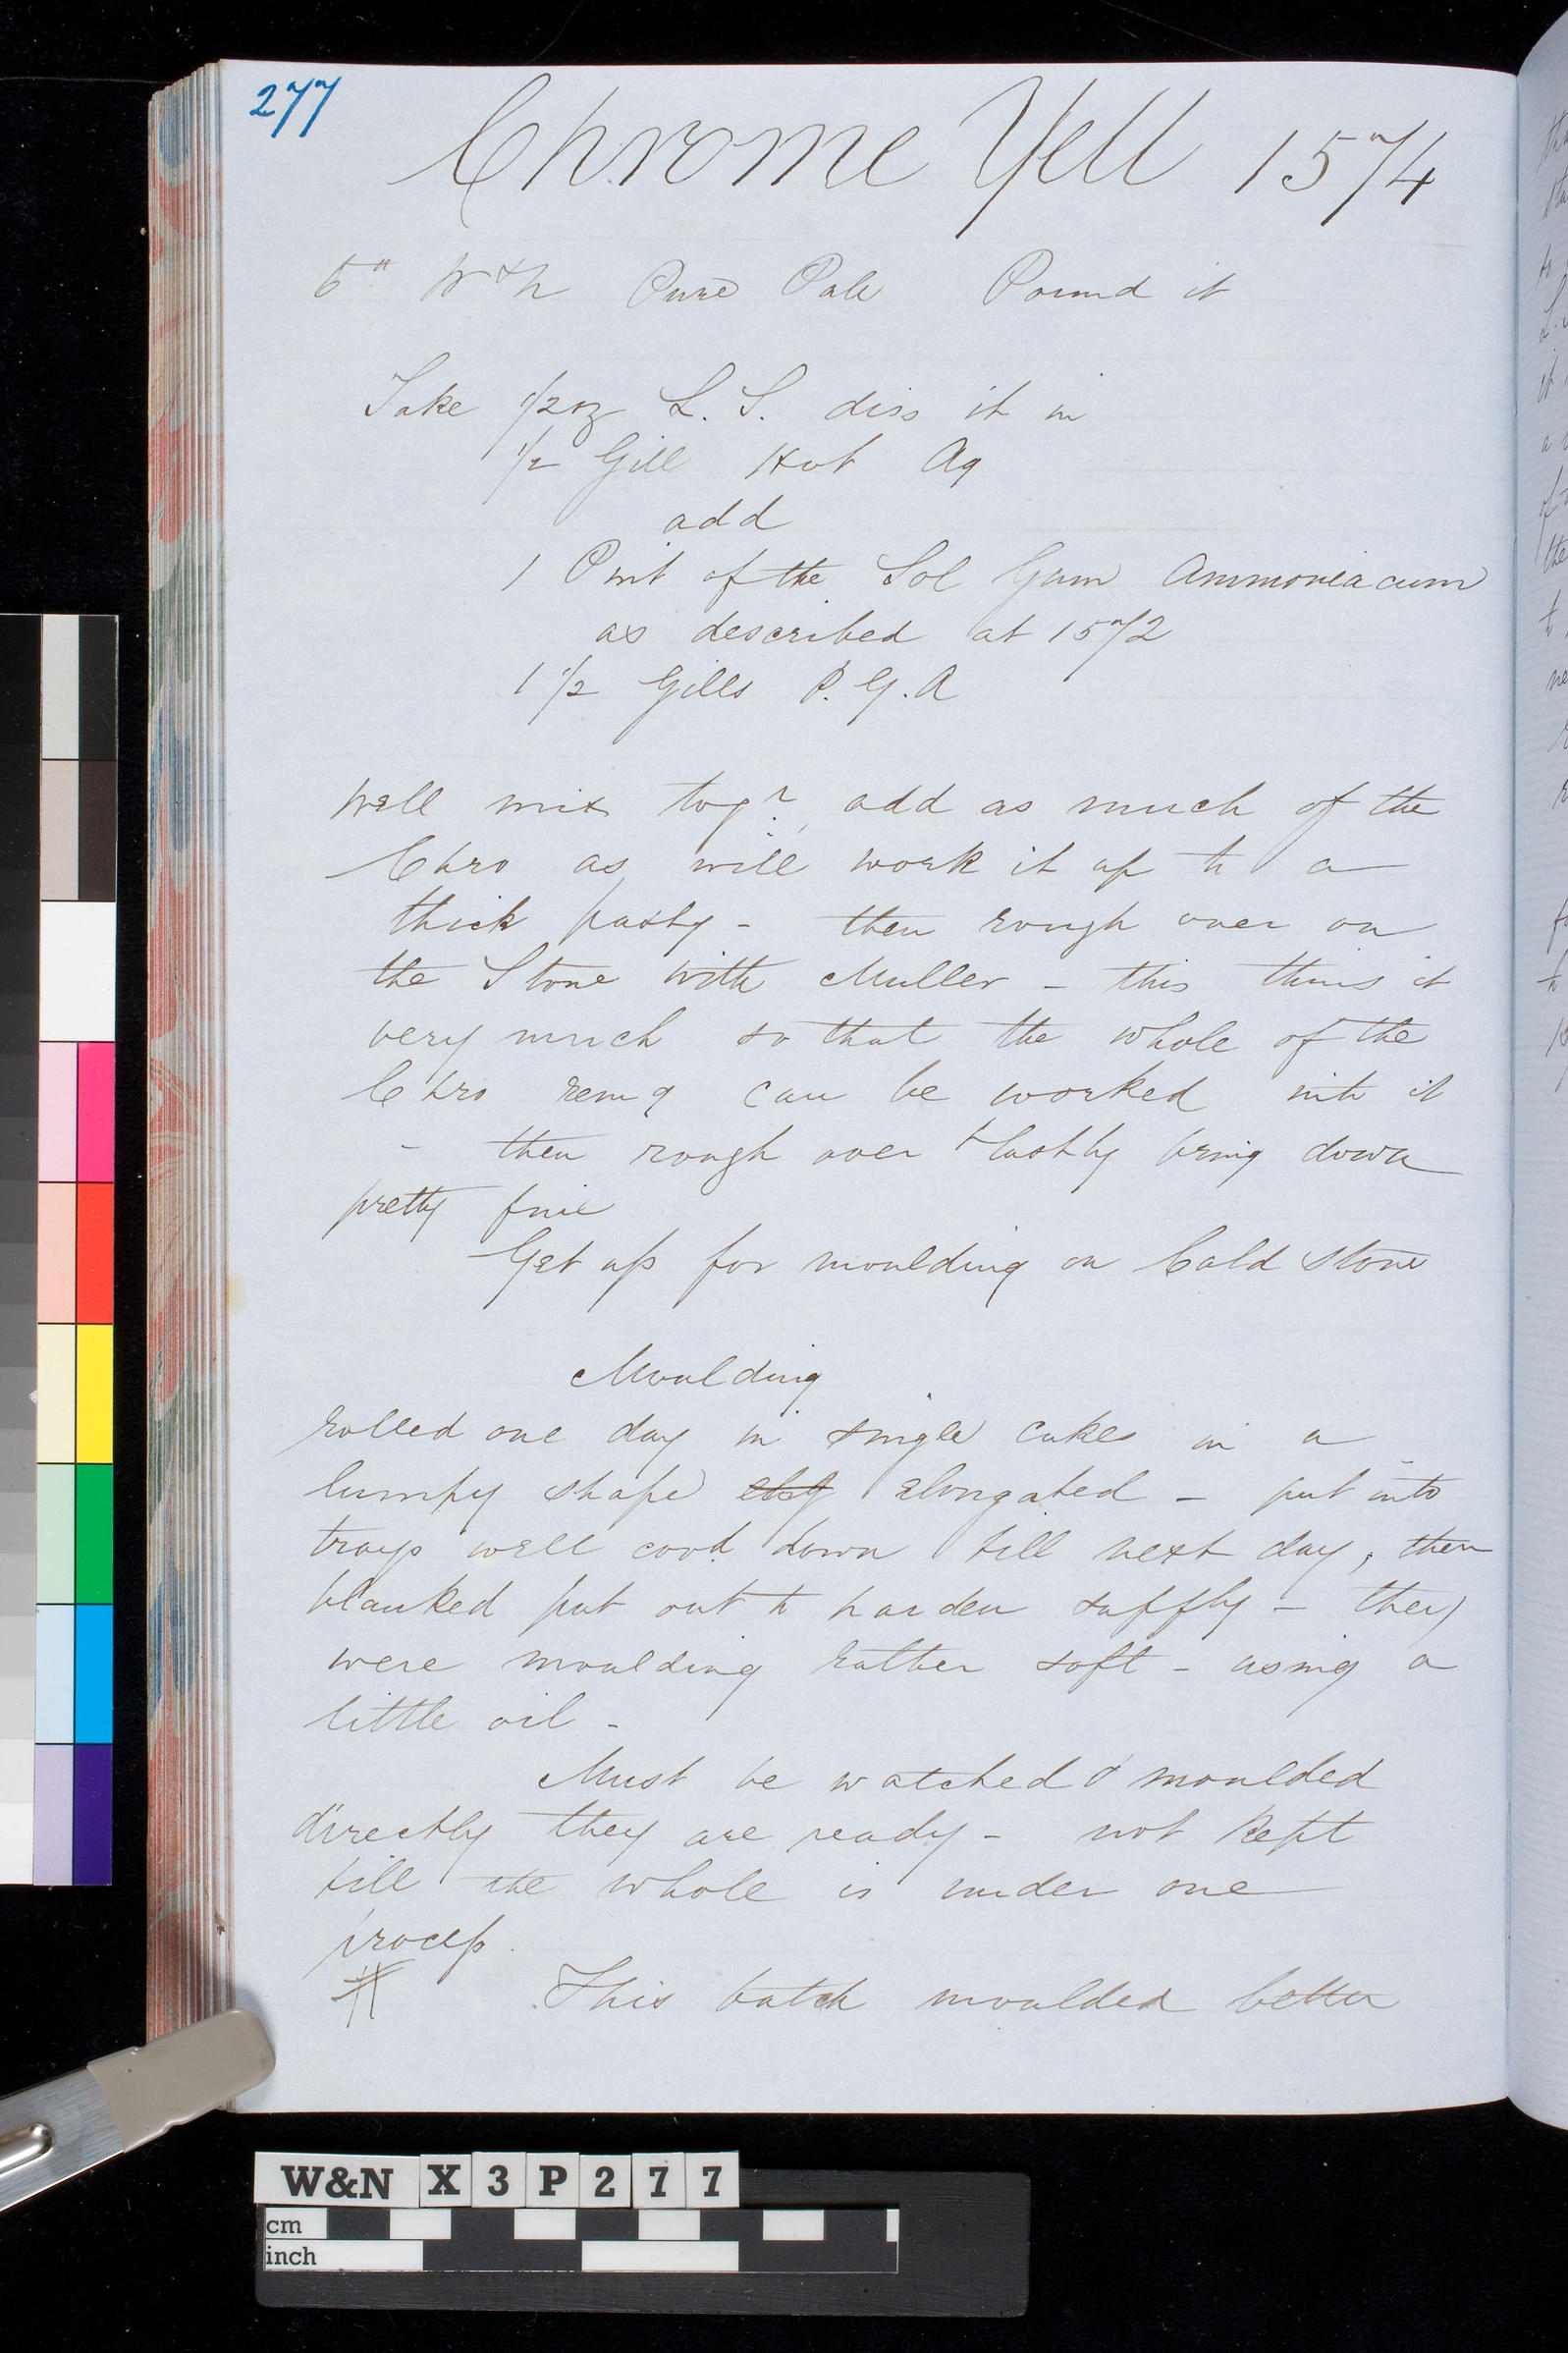 277
Chrome Yell 1574
6" W & N Pure Pale Pound it
Take 1/2 oz L. S. diss it in
1/2 Gill Hot Aq
add
1 Pint of the Sol Gum Ammoniacum
as described at 1572
1 1/2 Gills P. G. A
Well mix togr, add as much of the
Chro as will work it up to a
thick pasty - then rough over on
the Stone with Muller - this thins it
very much so that the whole of the
Chro remg can be worked into it
- then rough over & lastly bring down
pretty fine
Get up for moulding on Cold Stone
Moulding
rolled one day in single cakes in a
lumpy shape elong elongated - put into
trays well covd down till next day, then
blanked put out to harden suffly - they
were moulding rather soft - using a
little oil -
Must be watched & moulded
directly they are ready - not kept
till the whole is under one
process.
This batch moulded better
W&N X 3 P 2 7 7
cm
inch